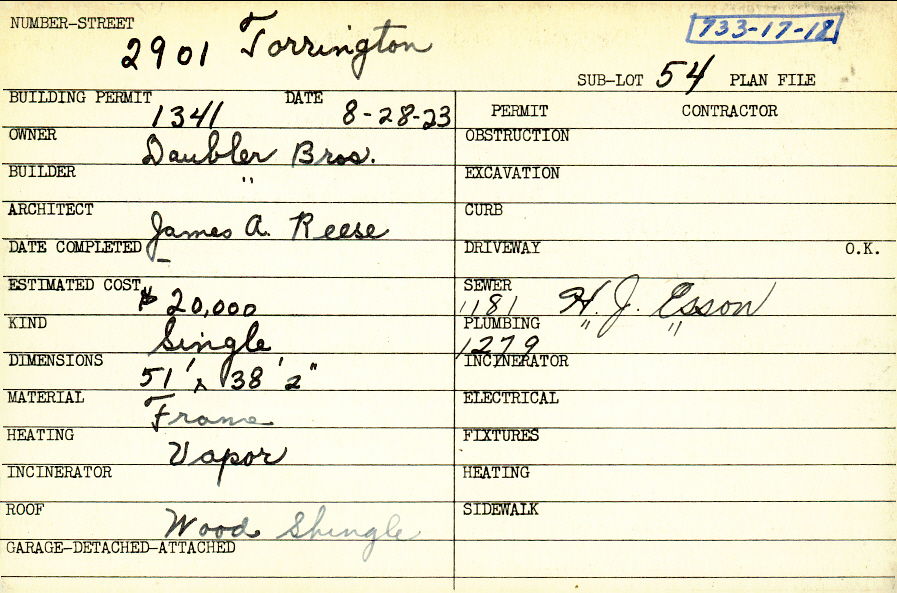 NUMBER-STREET
2901 Torrington
733-17-18
SUB-LOT 54 PLAN FILE
BUILDING PERMIT 1341 DATE 8-28-23
OWNER Daubler Bros.
BUILDER "
ARCHITECT James A. Reese
DATE COMPLETED –
ESTIMATED COST $20,000
KIND Single
DIMENSIONS 51' x 38' 2"
MATERIAL Frame
HEATING Vapor
INCINERATOR
ROOF Wood Shingle
GARAGE-DETACHED-ATTACHED
PERMIT CONTRACTOR
OBSTRUCTION
EXCAVATION
CURB
DRIVEWAY O.K.
SEWER
1181 H. J. Esson
PLUMBING " "
1279
INCINERATOR
ELECTRICAL
FIXTURES
HEATING
SIDEWALK